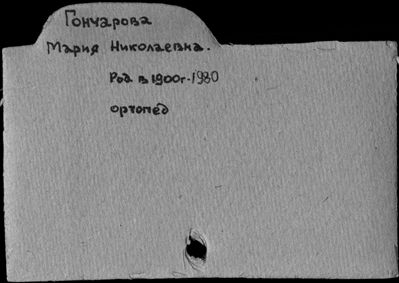 Гончарова
Мария Николаевна.
Род в 1900г-1980
ортопед